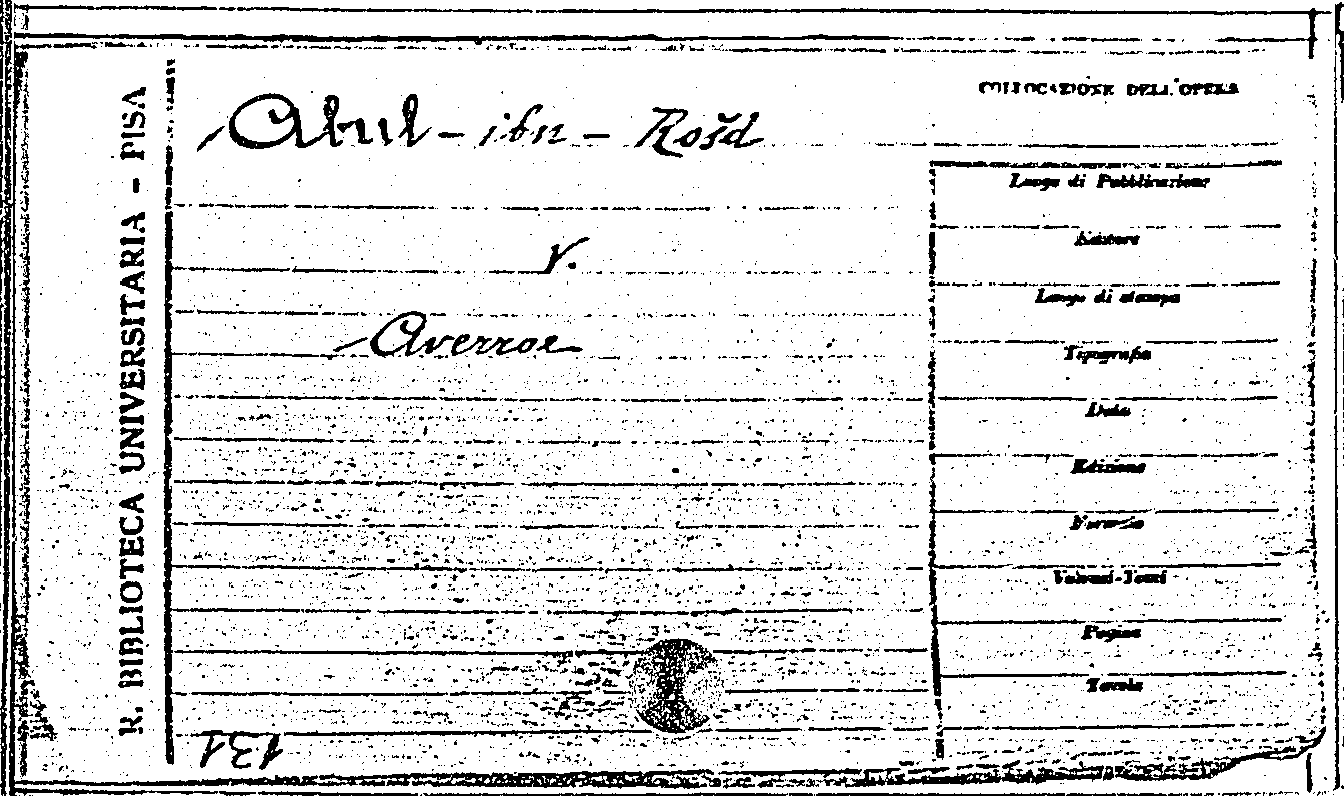 R. BIBLIOTECA UNIVERSITARIA - PISA
Abul - ibn - Rošd
V.
Averroe
131
COLLOCAZIONE DELL'OPERA
Luogo di Pubblicazione
Editore
Luogo di stampa
Tipografia
Data
Edizione
Formato
Volumi-Tomi
Pagine
Tavole